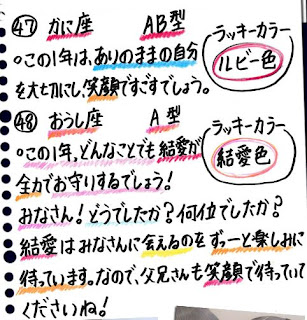 ㊼ かに座 AB型
ラッキーカラー
ルビー色
○この1年は、ありのままの自分
を大切にし、笑顔ですごすでしょう。
㊽ おうし座 A型
ラッキーカラー
結愛色
○この1年、どんなことでも結愛が
全力でお守りするでしょう!
みなさん!どうでしたか?何位でしたか?
結愛はみなさんに会えるのをずーっと楽しみに
待っています。なので、父兄さんも笑顔で待っていて
くださいね!